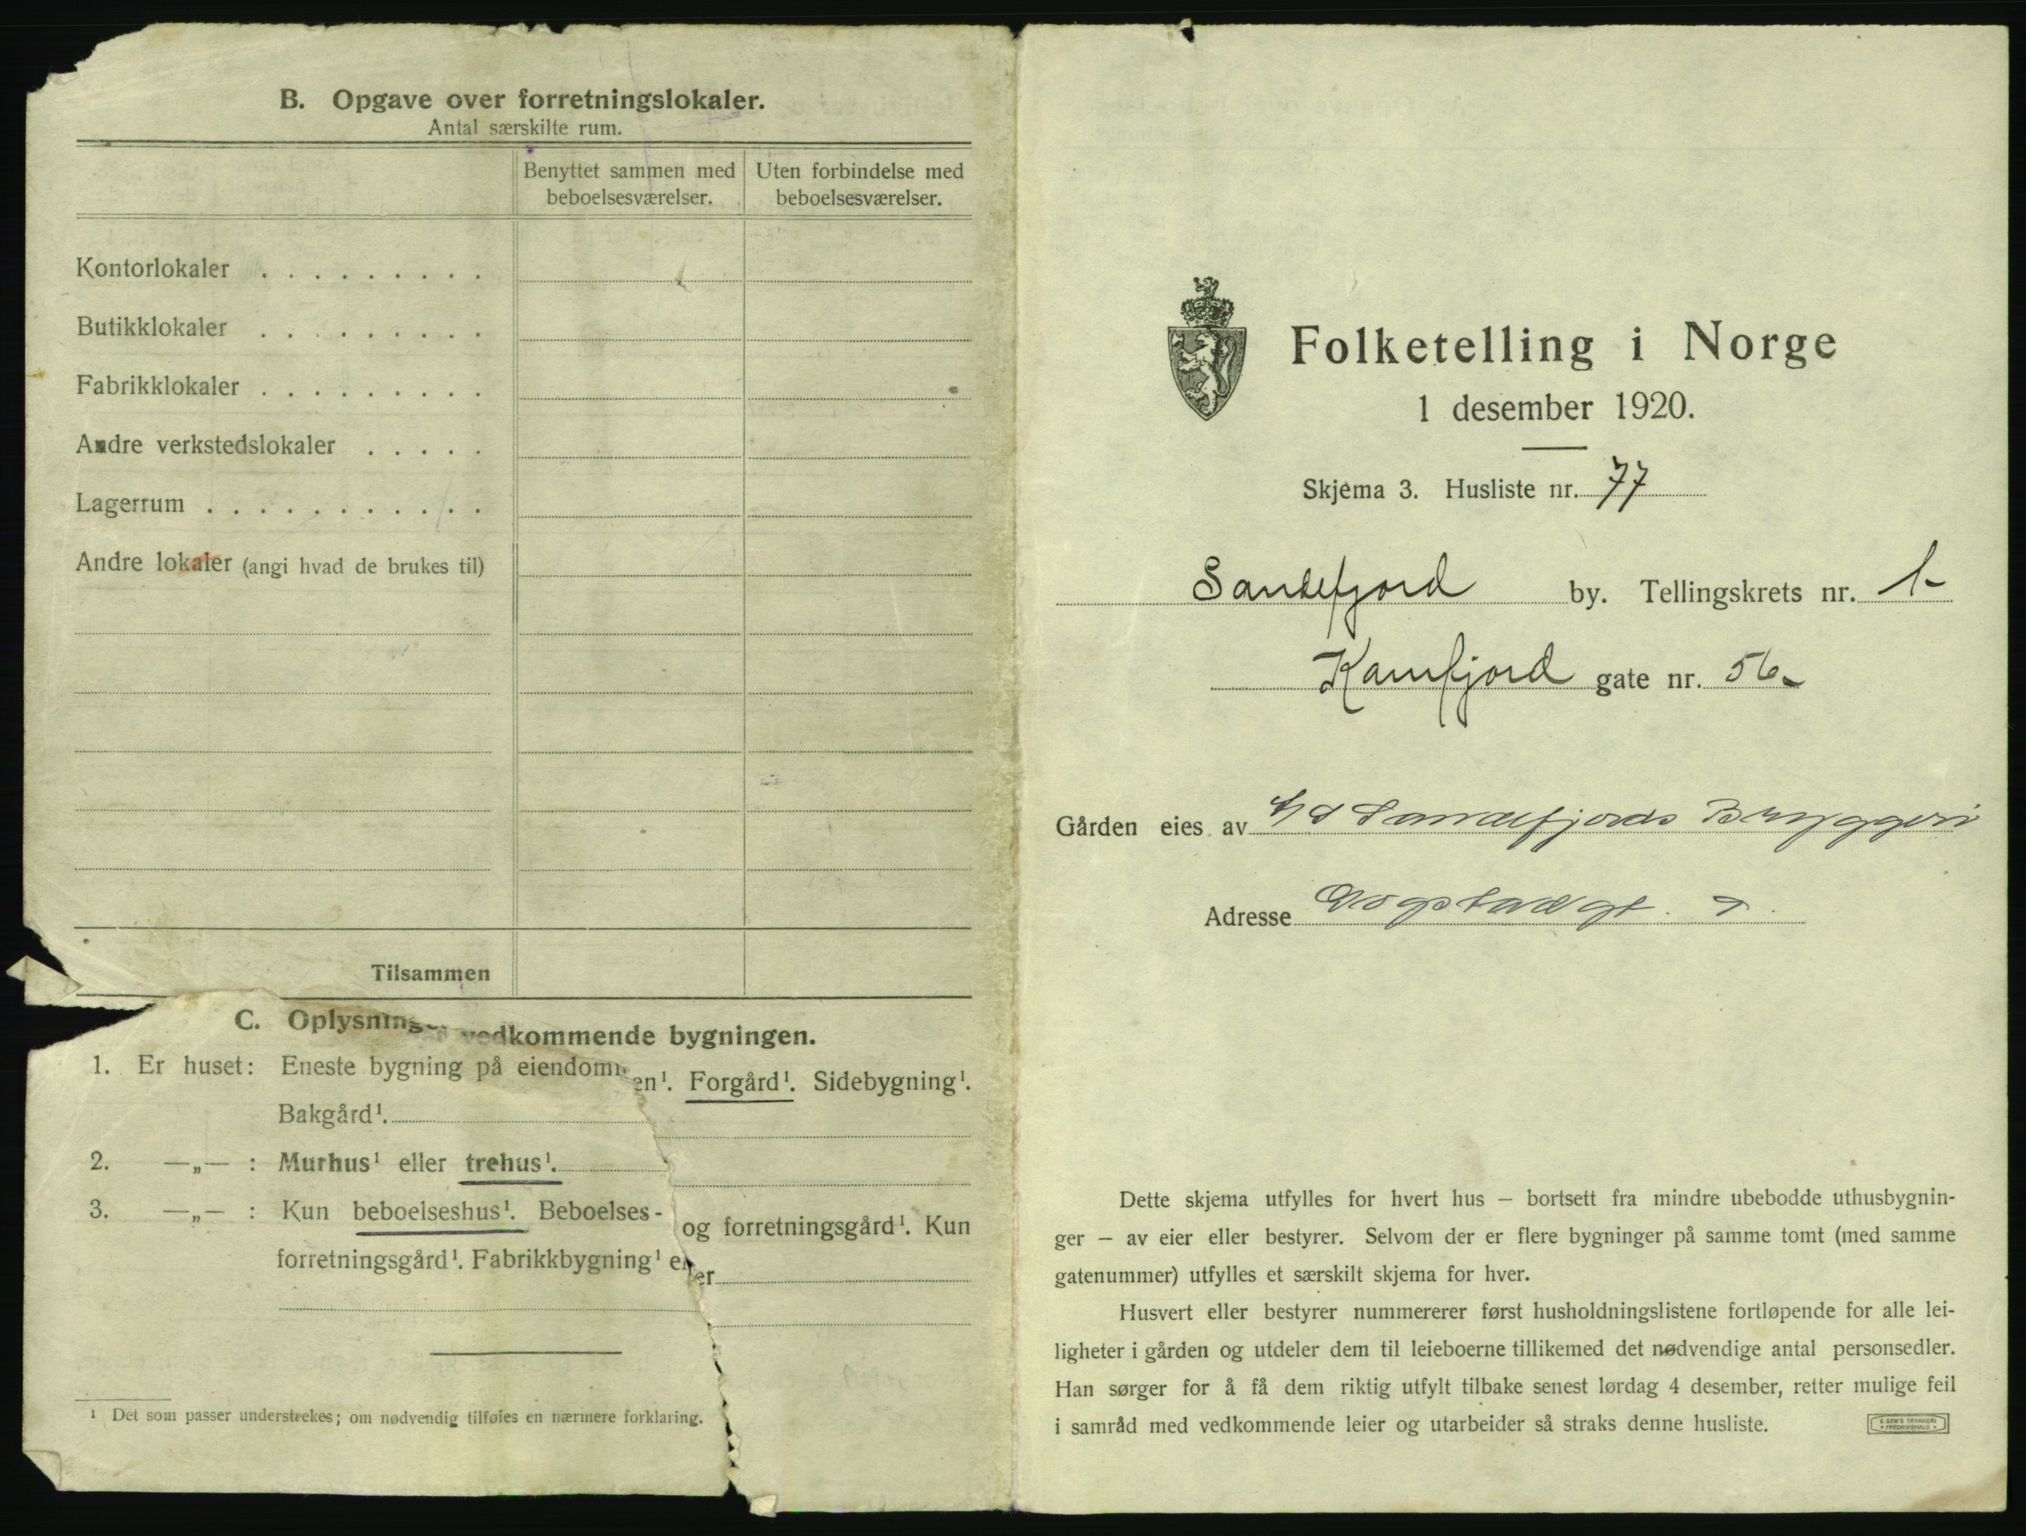 B. Opgave over forretningslokaler.
Antal særskilte rum.
Benyttet sammen med beboelsesværelser.
Uten forbindelse med beboelsesværelser.
Kontorlokaler . . . . . . . . .
Butikklokaler . . . . . . . . .
Fabrikklokaler . . . . . . . . .
Andre verkstedslokaler . . . . .
Lagerrum . . . . . . . . . . .
Andre lokaler (angi hvad de brukes til)
Tilsammen
C. Oplysninger vedkommende bygningen.
1. Er huset: Eneste bygning på eiendommen¹. Forgård¹. Sidebygning¹.
Bakgård¹.
2. —„— : Murhus¹ eller trehus¹.
3. —„— : Kun beboelseshus¹. Beboelses- og forretningsgård¹. Kun
forretningsgård¹. Fabrikkbygning¹ eller
¹ Det som passer understrekes; om nødvendig tilføies en nærmere forklaring.
Folketelling i Norge
1 desember 1920.
Skjema 3. Husliste nr. 77
Sandefjord by. Tellingskrets nr. 1
Kamfjord gate nr. 56
Gården eies av A/S Sandefjords Bryggeri
Adresse
Dette skjema utfylles for hvert hus — bortsett fra mindre ubebodde uthusbygnin-
ger — av eier eller bestyrer. Selvom der er flere bygninger på samme tomt (med samme
gatenummer) utfylles et særskilt skjema for hver.
Husvert eller bestyrer nummererer først husholdningslistene fortløpende for alle lei-
ligheter i gården og utdeler dem til leieboerne tillikemed det nødvendige antal personsedler.
Han sørger for å få dem riktig utfylt tilbake senest lørdag 4 desember, retter mulige feil
i samråd med vedkommende leier og utarbeider så straks denne husliste.
E. SEM'S TRYKKERI
FREDRIKSHALD